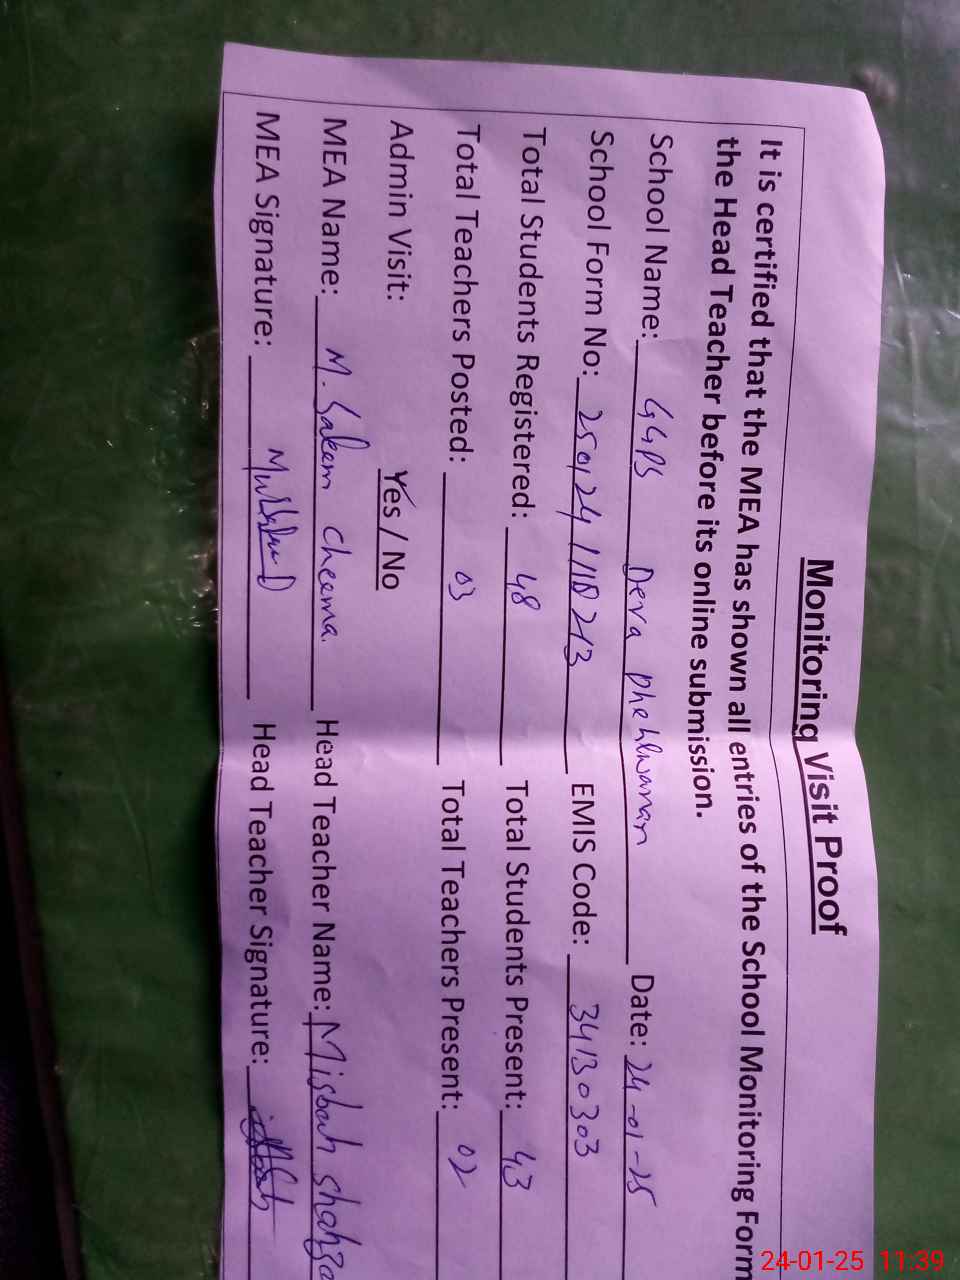 Monitoring Visit Proof
It is certified that the MEA has shown all entries of the School Monitoring Form
the Head Teacher before its online submission.
School Name: GGPS Dera Phehlwanan Date: 24-01-25
School Form No: 250124118213 EMIS Code: 34130303
Total Students Registered: 48 Total Students Present: 43
Total Teachers Posted: 03 Total Teachers Present: 02
Admin Visit: Yes / No
MEA Name: M. Saleem Cheema. Head Teacher Name: Misbah shahza
MEA Signature: Head Teacher Signature:
24-01-25 11:39